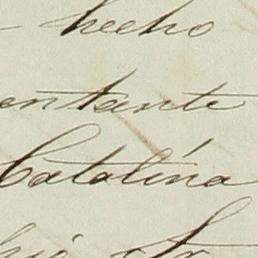 hecho
entante
Catalina